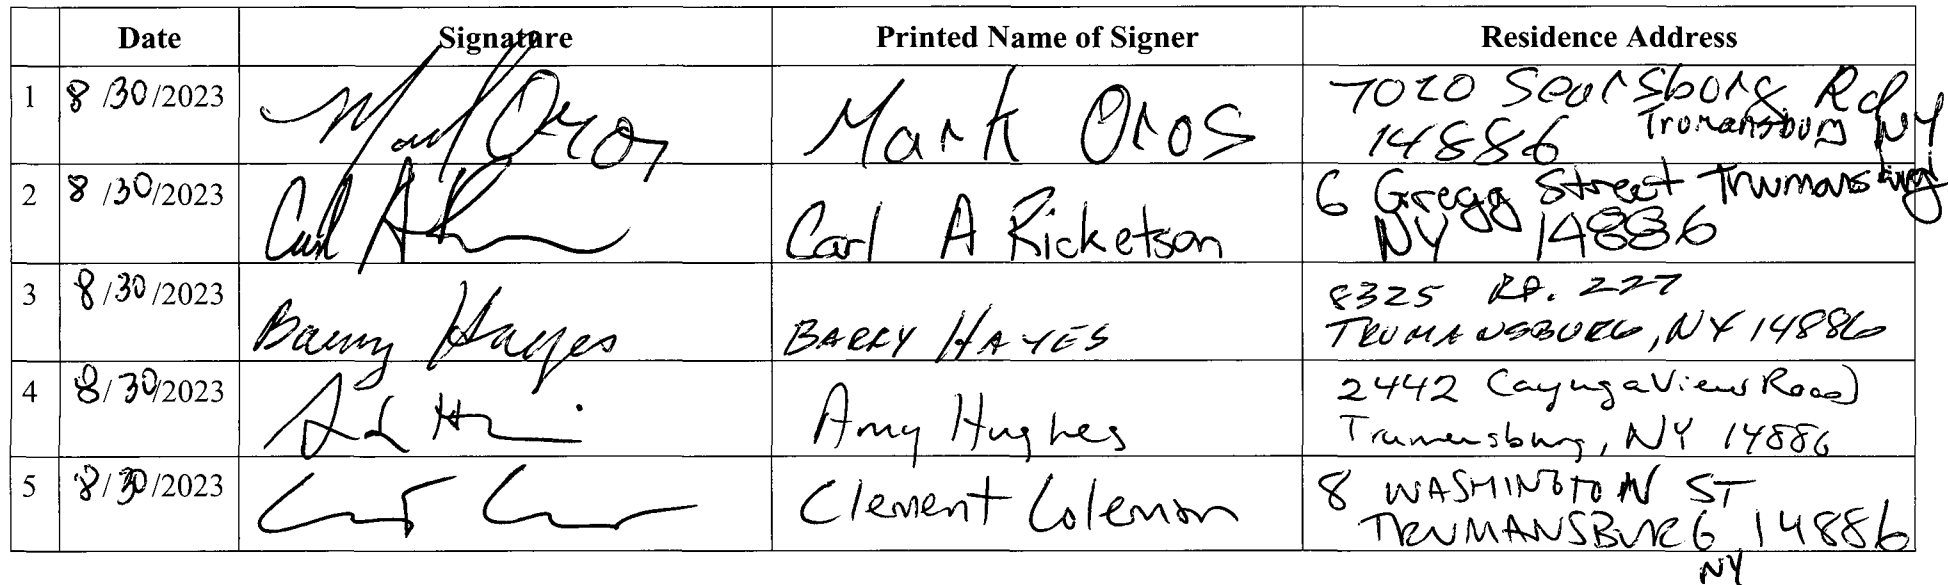 Date Signature Printed Name of Signer Residence Address
1 8/30/2023 Mark Oros Mark Oros 7020 Searsburg Rd
14886 Trumansburg NY
2 8/30/2023 Carl A Carl A Ricketson 6 Gregg Street Trumansburg
NY 14886
3 8/30/2023 Barry Hayes BARRY HAYES 8325 Rt. 227
TRUMANSBURG, NY 14886
4 8/30/2023 Amy Hughes 2442 Cayuga View Road
Trumansburg, NY 14886
5 8/30/2023 Clement Coleman 8 WASHINGTON ST
TRUMANSBURG 14886
NY